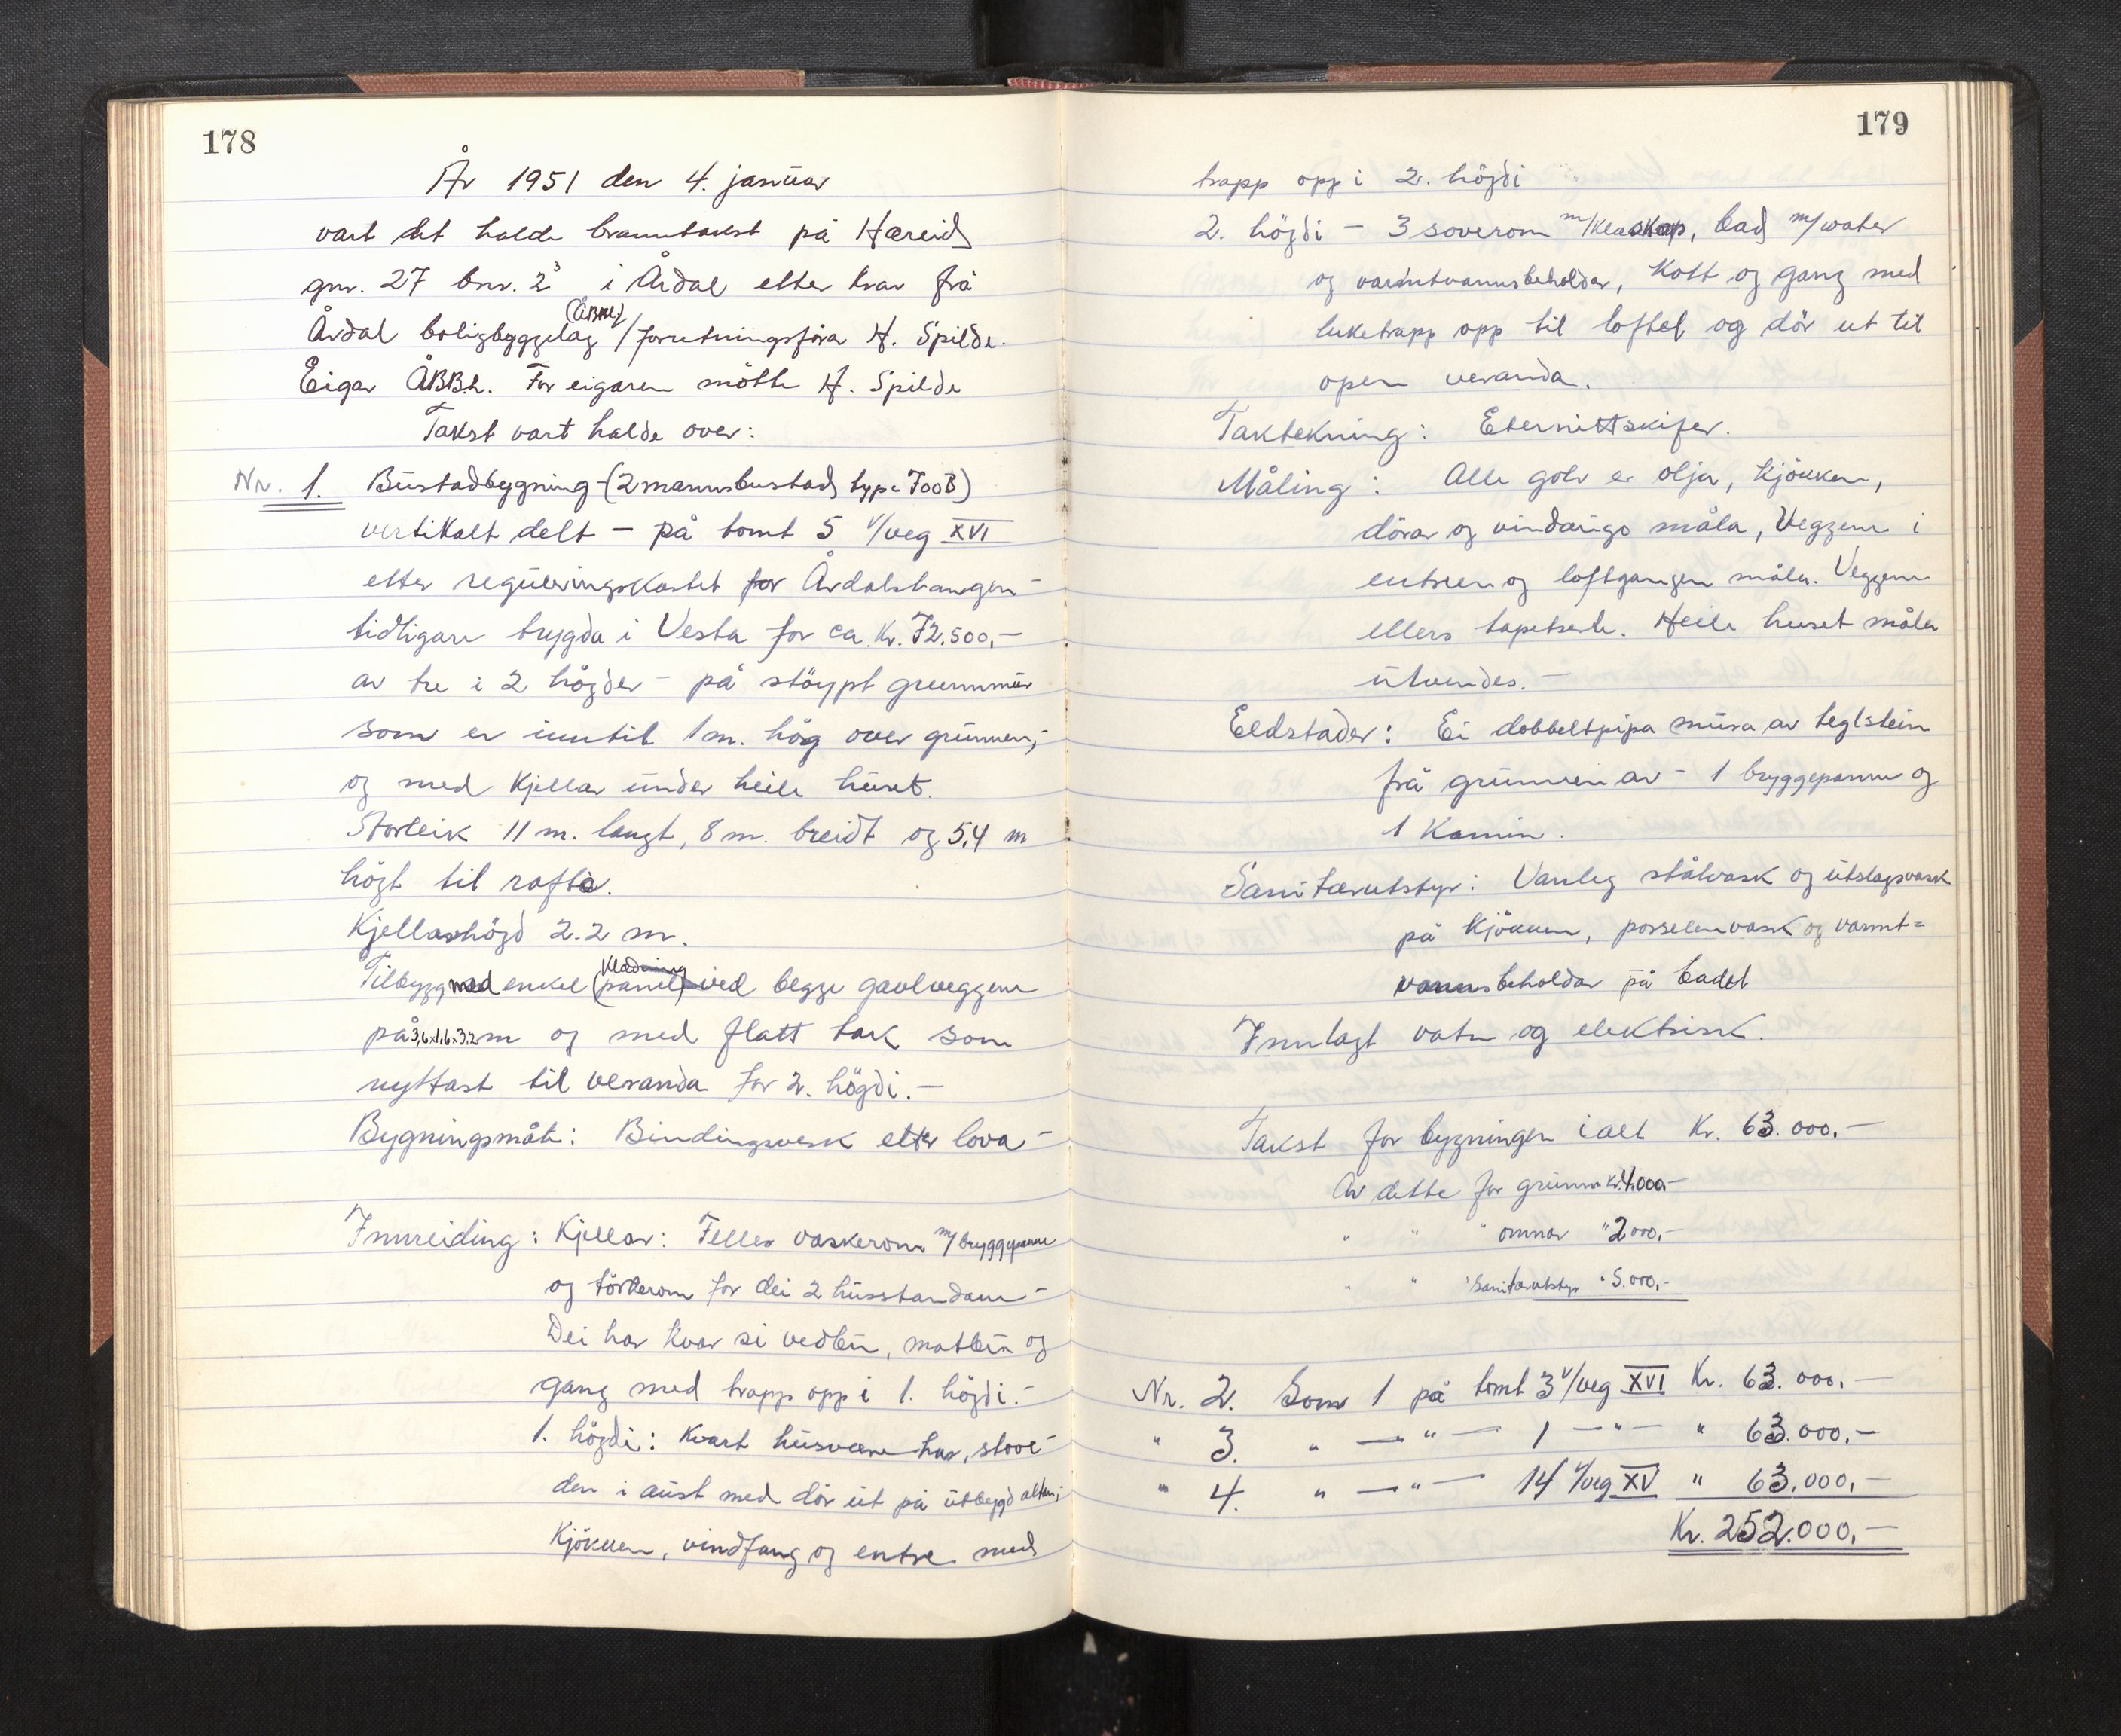 178
År 1951 den 4. januar
vart det halde branntakst på Hæreid
gnr. 27 bnr. 2³ i Årdal etter krav frå
(ÅBBL)
Årdal boligbyggelag / forretningsførar H. Spilde.
Eigar ÅBBL. For eigaren møtte H. Spilde
Takst vart halde over:
Nr. 1. Bustadbygning - (2 mannsbustad type 700B)
vertikalt delt – på tomt 5 v/veg XVI
etter reguleringskartet for Årdalstangen –
tidligare trygda i Vesta for ca. kr. 72.500,–
av tre i 2 högder – på stöypt grunnmur
som er inntil 1 m. hög over grunnen,
og med kjellar under heile huset.
Storleik 11 m. langt, 8 m. breidt og 5,4 m
högt til rafte.
Kjellarhögd 2.2 m.
Klædning
Tilbygg med enkel (panel) ved begge gavlveggene
på 3,6x1,6x3,2 m og med flatt tak som
nyttast til veranda for 2. högdi. –
Bygningsmåte: Bindingsverk etter lova –
Innreiding: Kjellar: Felles vaskerom m/bryggepanne
og törkerom for dei 2 husstandane –
Dei har kvar si vedbu, matbu og
gang med trapp opp i 1. högdi. –
1. högdi: Kvart husvære har, stove –
den i aust med dör ut på utbygd altan;
Kjökken, vindfang og entre med
179
trapp opp i 2. högdi
2. högdi – 3 soverom m/kleskap, bad m/water
og varmtvannsbeholdar, kott og gang med
luketrapp opp til loftet og dör ut til
open veranda.
Taktekning: Eternittskifer.
Måling: Alle golv er olja, kjökken,
dörar og vindaugo måla, Veggene i
entreen og loftgangen måla. Veggene
ellers tapetserte. Heile huset måla
utvendes. –
Eldstader: Ei dobbeltpipa mura av teglstein
frå grunnen av – 1 bryggepanne og
1 kamin.
Sanitærutstyr: Vanleg stålvask og utslagsvask
på kjökken, porselenvask og varmt=
vannsbeholdar på badet
Innlagt vatn og elektrisk.
Takst for bygningen ialt Kr. 63.000,–
Av dette for grunn kr. 4.000–
" " " omnar " 2000,–
" " " Sanitærutstyr " 5.000,–
Nr. 2. Som 1 på tomt 3 v/veg XVI Kr. 63.000,–
" 3. " —"— 1 —"— " 63.000,–
" 4. " —"— 14 v/veg XV " 63.000,–
Kr. 252.000,–